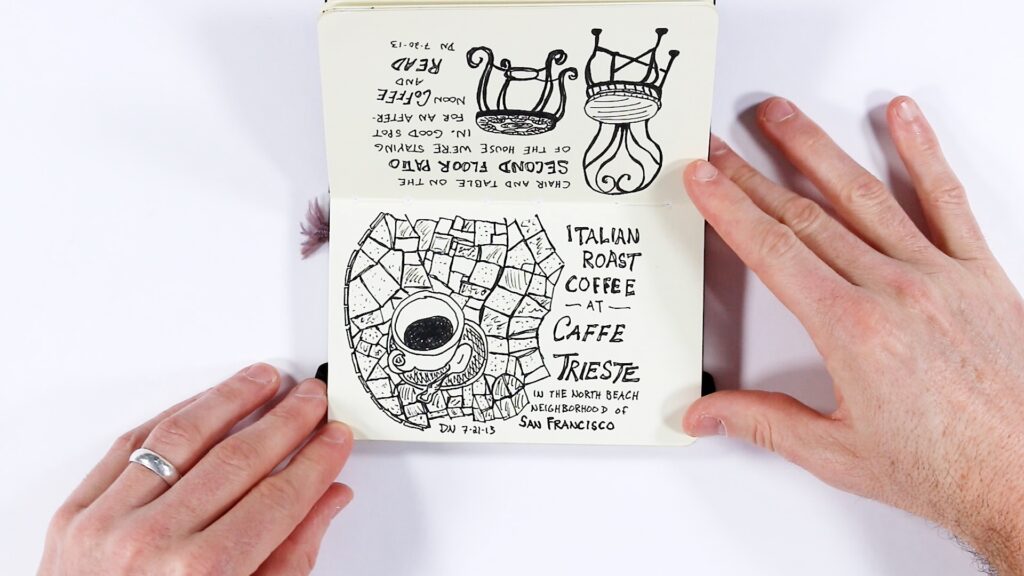 CHAIR AND TABLE ON THE
SECOND FLOOR PATIO
OF THE HOUSE WE'RE STAYING
IN. GOOD SPOT
FOR AN AFTER-
NOON COFFEE
AND
READ
DN 7-20-13
ITALIAN
ROAST
COFFEE
— AT —
CAFFE
TRIESTE
IN THE NORTH BEACH
NEIGHBORHOOD of
SAN FRANCISCO
DN 7-21-13